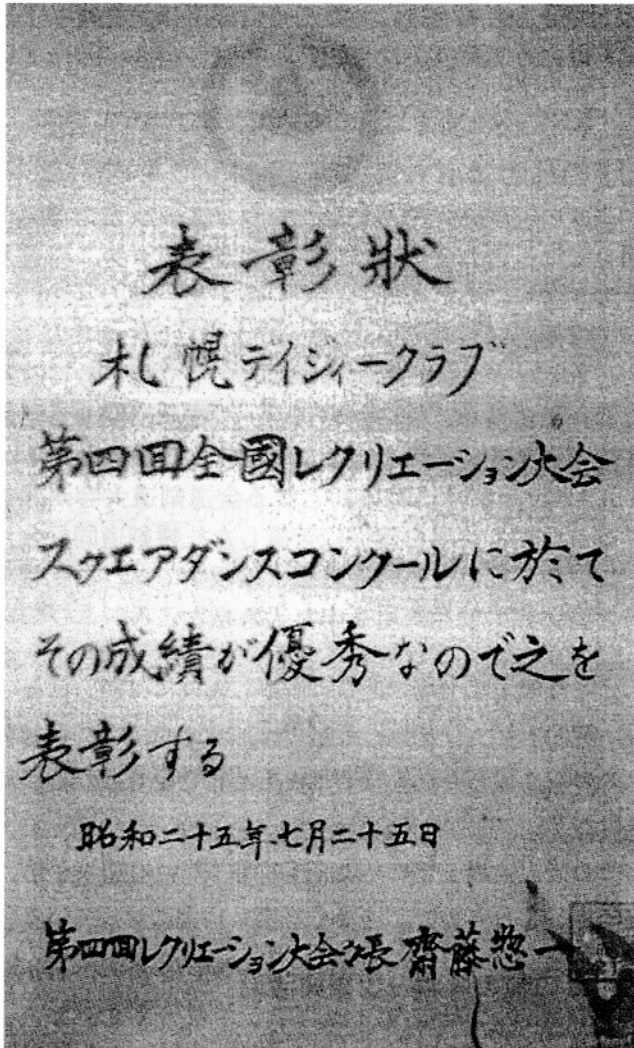 表彰狀
札幌デイジィークラブ
第四回全國レクリエーション大会
スクエアダンスコンクールに於て
その成績が優秀なので之を
表彰する
昭和二十五年七月二十五日
第四回レクリエーション大会々長 齋藤惣一